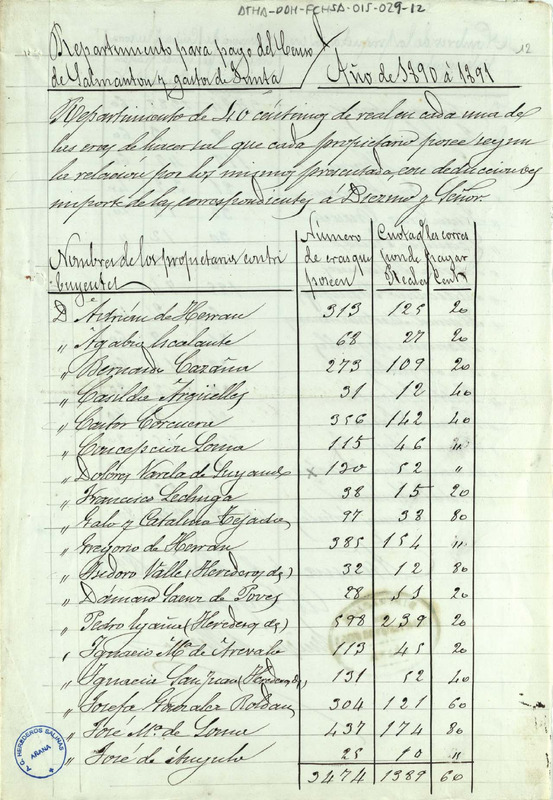 ATHA-DAH-FCHSA-015-029-12
12
Repartimiento para pago del Censo
de Salmanton y gastos de Junta
Año de 1890 á 1891
Repartimiento de 40 céntimos de real en cada una de
las eras de hacer sal que cada propietario posee segun
la relación por los mismos presentada, con deducciones
importe de las correspondientes á Diezmo y Señor.
Nombres de los propietarios contri
buyentes
Numero
de eras que
poseen
Cuota q les corres
ponde pagar
Reales Cent
D Adrián de Herran 313 125 20
" Agapito Escalante 68 27 20
" Bernardo Carañua 273 109 20
" Casilda Argüelles 31 12 40
" Castor Corcuera 356 142 40
" Concepción Loma 115 46 "
" Dolores Varela de Luyando × 130 52 "
" Francisco Lechuga 38 15 20
" Galo y Catalina Tejada 97 38 80
" Gregorio de Herran 385 154 "
" Isidoro Valle (Herederos de) 32 12 80
" Dámaso Saenz de Poves 28 11 20
" Pedro Egaña (Herederos de) 598 239 20
" Ignacio Mª de Arevalo 113 45 20
" Ignacia Sanjuan (Herederos de) 131 52 40
" Josefa Gonzalez Roldan 304 121 60
" José Mª de Loma 437 174 80
" José de Angulo 25 10 "
3474 1389 60
A. G. HEREDEROS SALINAS
AÑANA